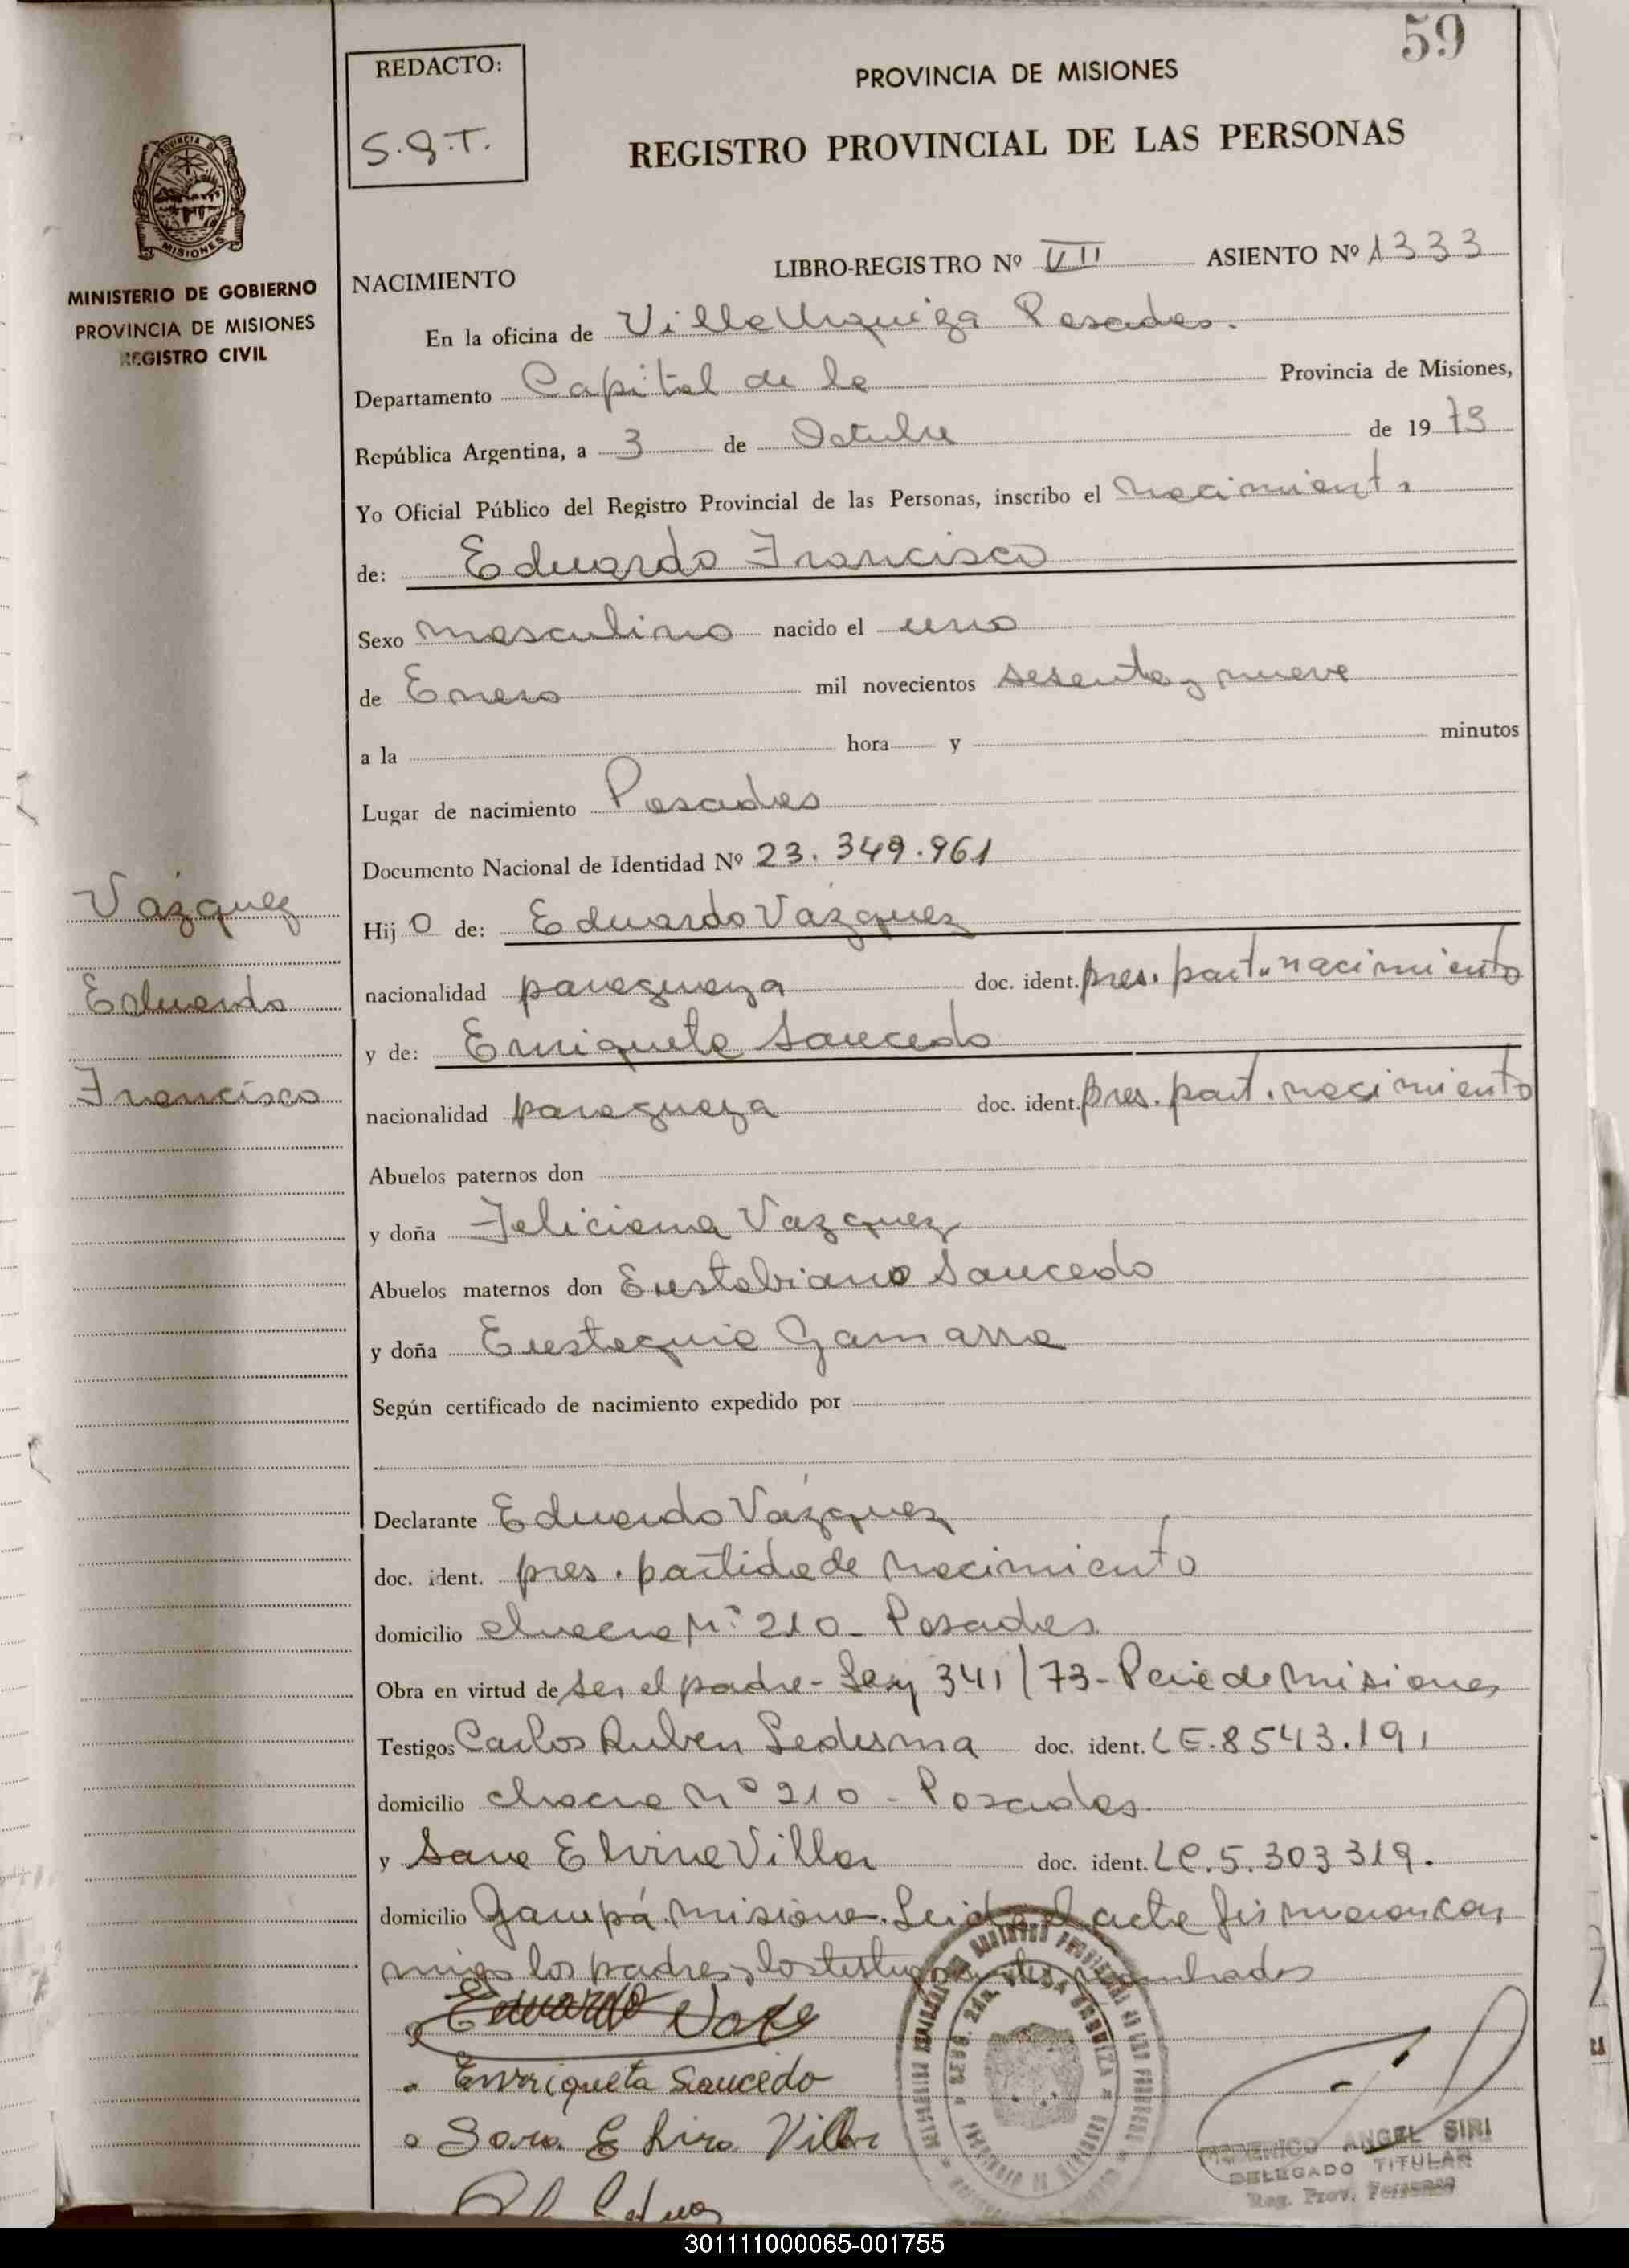 59
REDACTO:
S.G.T.
PROVINCIA DE MISIONES
REGISTRO PROVINCIAL DE LAS PERSONAS
PROVINCIA DE
MISIONES
MINISTERIO DE GOBIERNO
PROVINCIA DE MISIONES
REGISTRO CIVIL
NACIMIENTO LIBRO-REGISTRO Nº VII ASIENTO Nº 1333
En la oficina de Villa Urquiza Posadas.
Departamento Capital de la Provincia de Misiones,
República Argentina, a 3 de Octubre de 1973
Yo Oficial Público del Registro Provincial de las Personas, inscribo el nacimiento
de: Eduardo Francisco
Sexo masculino nacido el uno
de Enero mil novecientos sesenta y nueve
a la hora y minutos
Lugar de nacimiento Posadas
Documento Nacional de Identidad Nº 23.349.961
Vázquez
Eduardo
Francisco
Hij o de: Eduardo Vázquez
nacionalidad paraguaya doc. ident. pres. part. nacimiento
y de: Enriqueta Saucedo
nacionalidad paraguaya doc. ident. pres. part. nacimiento
Abuelos paternos don
y doña Feliciana Vazquez
Abuelos maternos don Eustabiano Saucedo
y doña Eustaquia Gamarra
Según certificado de nacimiento expedido por
Declarante Eduardo Vázquez
doc. ident. pres. partida de nacimiento
domicilio chacra Nº 210 - Posadas
Obra en virtud de ser el padre - Ley 341/73 - Pcia de Misiones
Testigos Carlos Ruben Ledesma doc. ident. LE. 8543.191
domicilio chacra Nº 210 - Posadas
y Sara Elvira Villar doc. ident. LC. 5.303319.
domicilio Garupá. Misiones. Leida el acta firmaron con
migo los padres, los testigos
Eduardo Vazq
Enriqueta Saucedo
Sara Elvira Villar
FEDERICO ANGEL SIRI
DELEGADO TITULAR
Reg. Prov. Personas
301111000065-001755